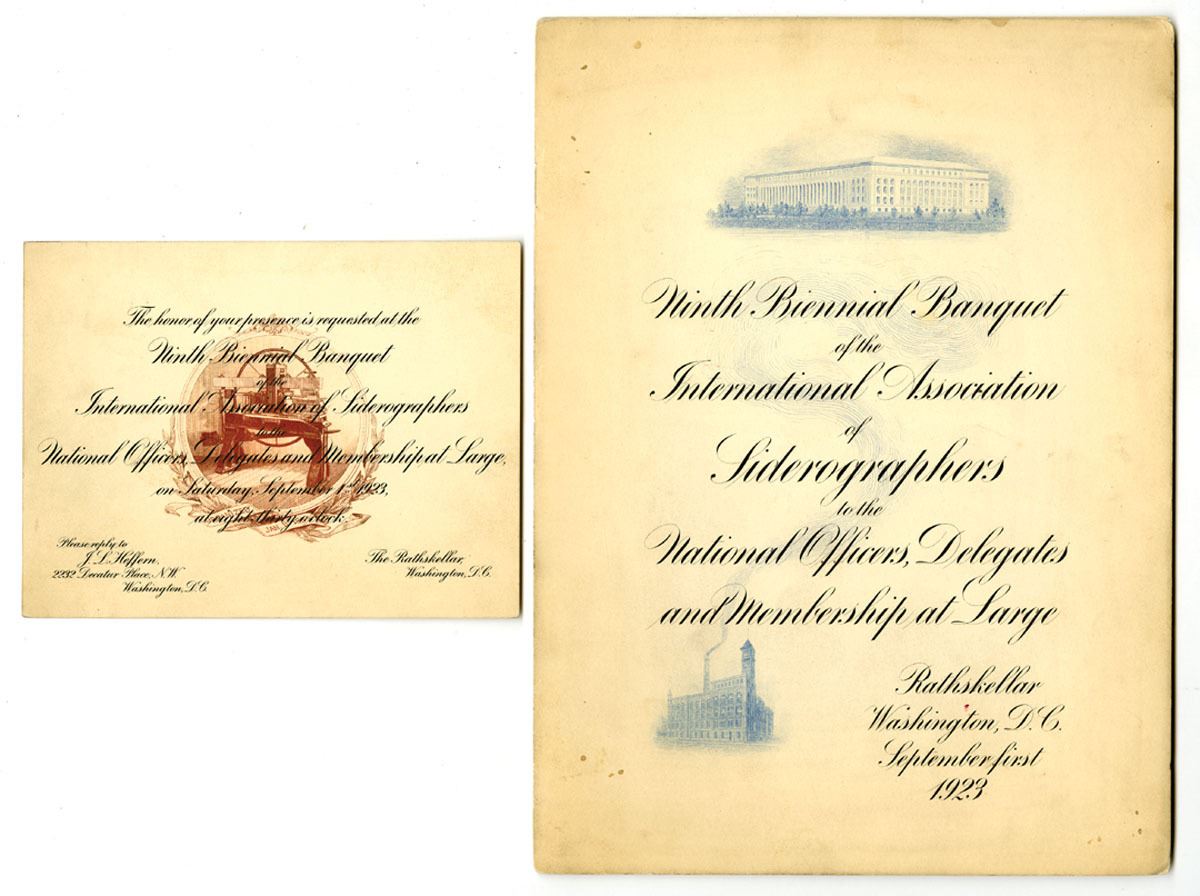 The honor of your presence is requested at the
Ninth Biennial Banquet
of the
International Association of Siderographers
to the
National Officers, Delegates and Membership at Large,
on Saturday, September 1st 1923,
at eight-thirty o'clock
JAN
Please reply to
J. L. Heffern,
2232 Decatur Place, N.W.
Washington, D.C.
The Rathskellar,
Washington, D.C.
Ninth Biennial Banquet
of the
International Association
of
Siderographers
to the
National Officers, Delegates
and Membership at Large
Rathskellar
Washington, D.C.
September first
1923